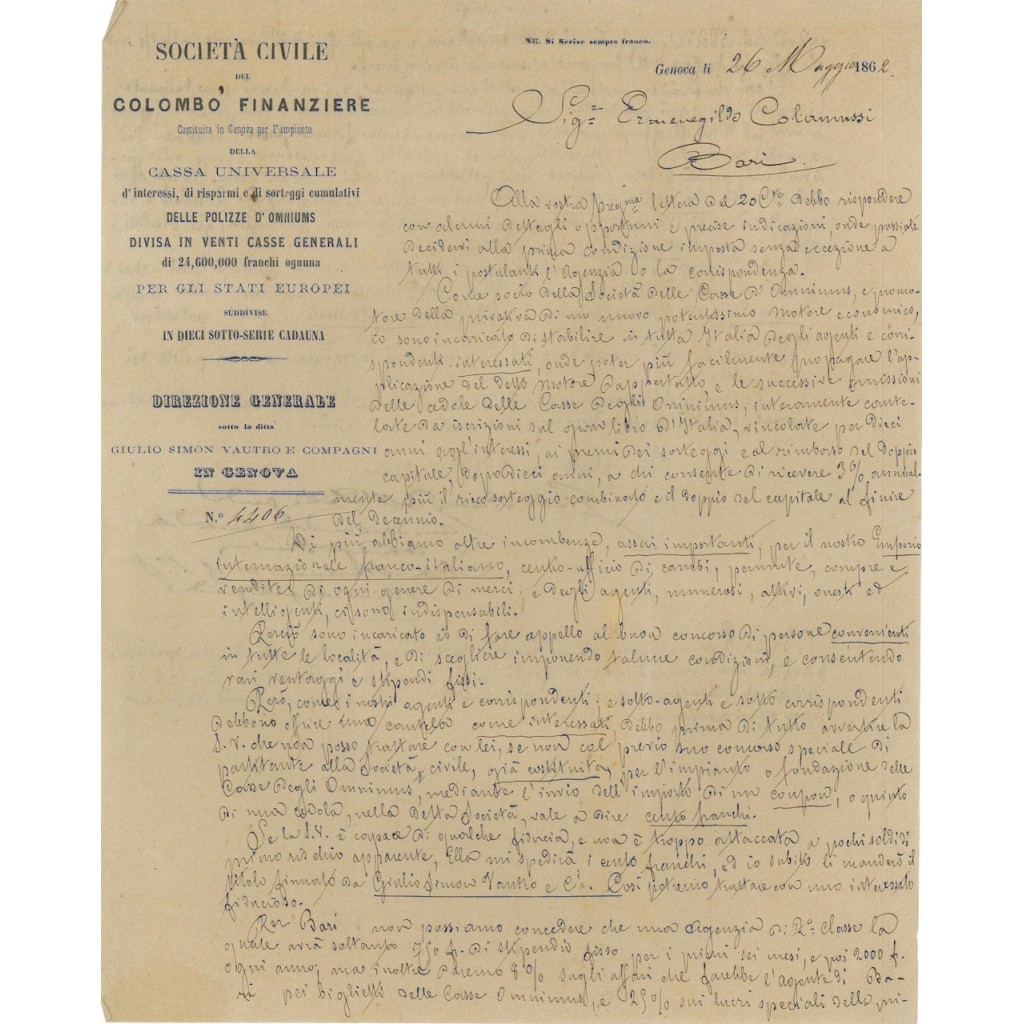 NB. Si Scrive sempre franco.
SOCIETÀ CIVILE
DEL
COLOMBO FINANZIERE
Costituita in Genova per l'impianto
DELLA
CASSA UNIVERSALE
d'interessi, di risparmi e di sorteggi cumulativi
DELLE POLIZZE D'OMNIUMS
DIVISA IN VENTI CASSE GENERALI
di 24,600,000 franchi ognuna
PER GLI STATI EUROPEI
SUDDIVISE
IN DIECI SOTTO-SERIE CADAUNA
DIREZIONE GENERALE
sotto la ditta
GIULIO SIMON VAUTRO E COMPAGNI
IN GENOVA
N.º 4406
Genova li 26 Maggio 1862.
Sigr Ermenegildo Colamussi
Bari.
Alla vostra pregma lettera del 20 Cte debbo rispondere
con alcuni dettagli opportuni e precise indicazioni, onde possiate
decidervi alla prima condizione imposta senza eccezione a
tutti i postulanti l'Agenzia o la corrispondenza.
Come socio della Società delle Casse d'Omnimus, e promo-
tore della privativa di un nuovo potentissimo motore economico,
io sono incaricato di stabilire in tutta Italia degli agenti e corri-
spondenti interessati, onde poter più facilmente propagare l'ap-
plicazione del detto motore dappertutto, e le successive emissioni
delle cedole delle Casse degli Omnimus, interamente caute-
late da iscrizioni sul gran libro d'Italia, vincolate per dieci
anni agl'interessi, ai premi dei sorteggi e al rimborso del doppio
capitale, dopo dieci anni, a chi consente di ricevere 3% annual-
mente più il ricco sorteggio combinato e il doppio del capitale al finire
del decennio.
Di più abbiamo altre incombenze, assai importanti, per il nostro Emporio
internazionale franco-italiano, centro-ufficio di cambi, permute, compre e
vendite di ogni genere di merci, e degli agenti, numerosi, attivi, onesti ed
intelligenti, ci sono indispensabili.
Perciò sono incaricato io di fare appello al buon concorso di persone convenienti
in tutte le località, e di scegliere imponendo talune condizioni, e consentendo
vari vantaggi e stipendi fissi.
Però, come i nostri agenti e corrispondenti, e sotto-agenti e sotto corrispondenti
debbono offrire una cautela come interessati, debbo prima di tutto avvertire la
S.V. che non posso trattare con lei, se non col previo suo concorso speciale di
partitante alla Società civile, già costituita, per l'impianto o fondazione delle
Casse degli Omnimus, mediante l'invio dell'importo di un coupon, o quinto
di una cedola, nella detta Società, vale a dire cento franchi.
Se la S.V. è capace di qualche fiducia, e non è troppo attaccata a pochi soldi di
primo rischio apparente, Ella mi spedirà i cento franchi, ed io subito li manderò il
titolo firmato da Giulio Simon Vautro e Ci. Così potremo trattare con uno interessato
fiducioso.
Per Bari non possiamo concedere che una Agenzia di 2a Classe la
quale avrà soltanto 750 f. di stipendio fisso per i primi sei mesi, e poi 2000 f.
ogni anno; ma inoltre daremo 8% sugli affari che farebbe l'agente di Ba-
ri pei biglietti delle Casse Omnimus, e 25% sui lucri speciali della pri-